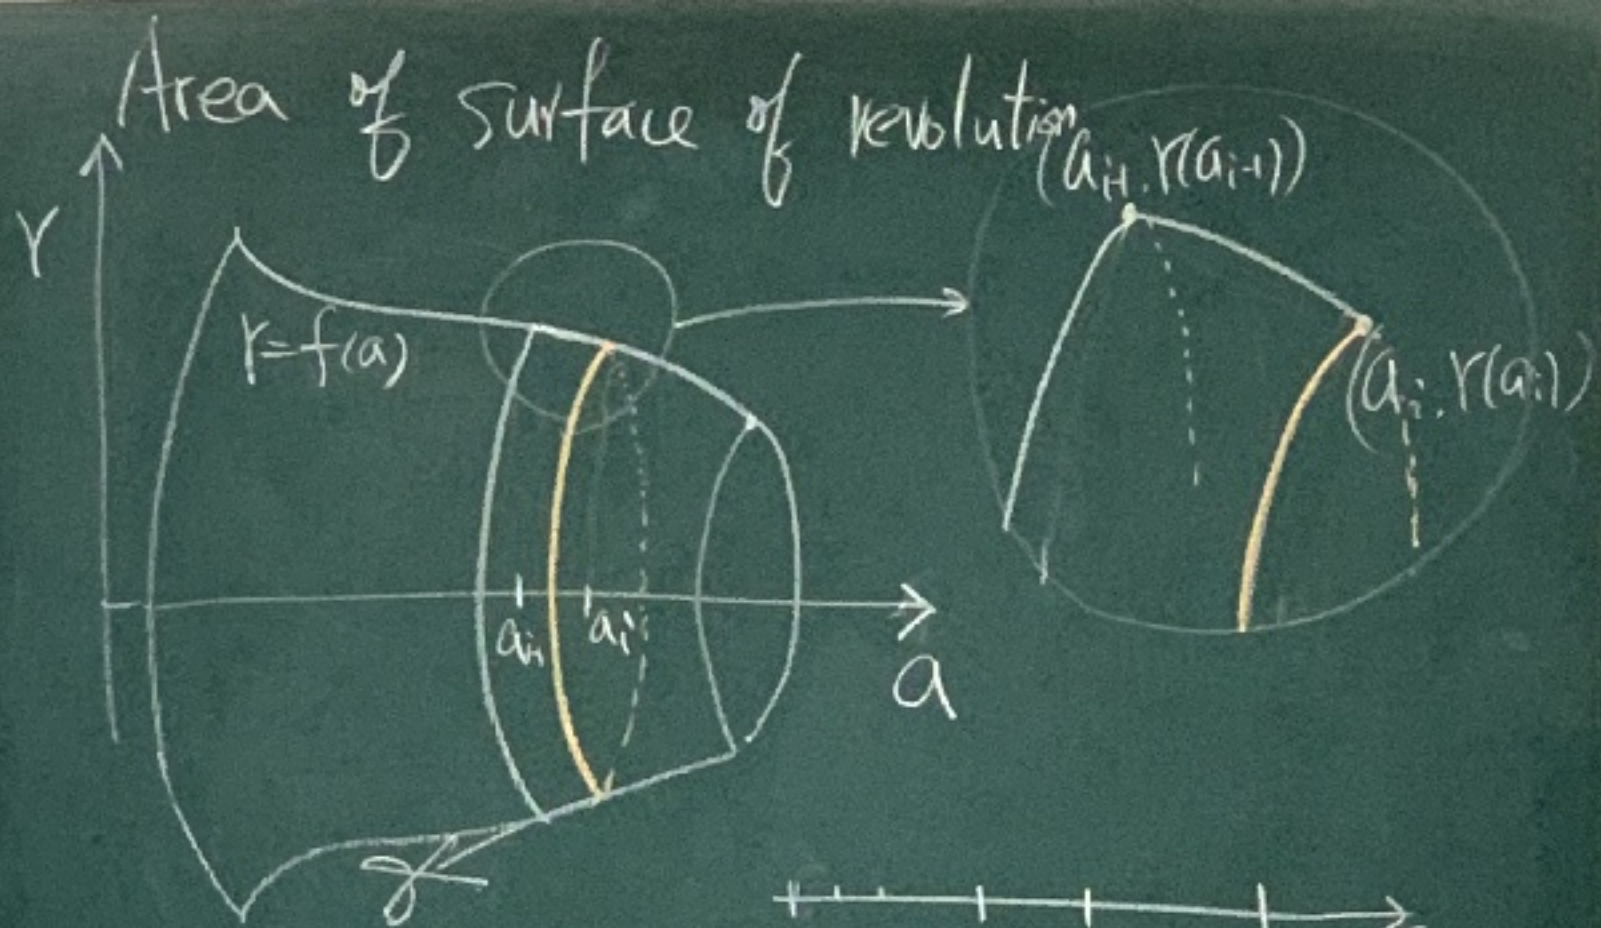 Area of surface of revolution
(a_{i-1}, r(a_{i-1}))
r
r=f(a)
(a_i, r(a_i))
a_{i-1} a_i
a